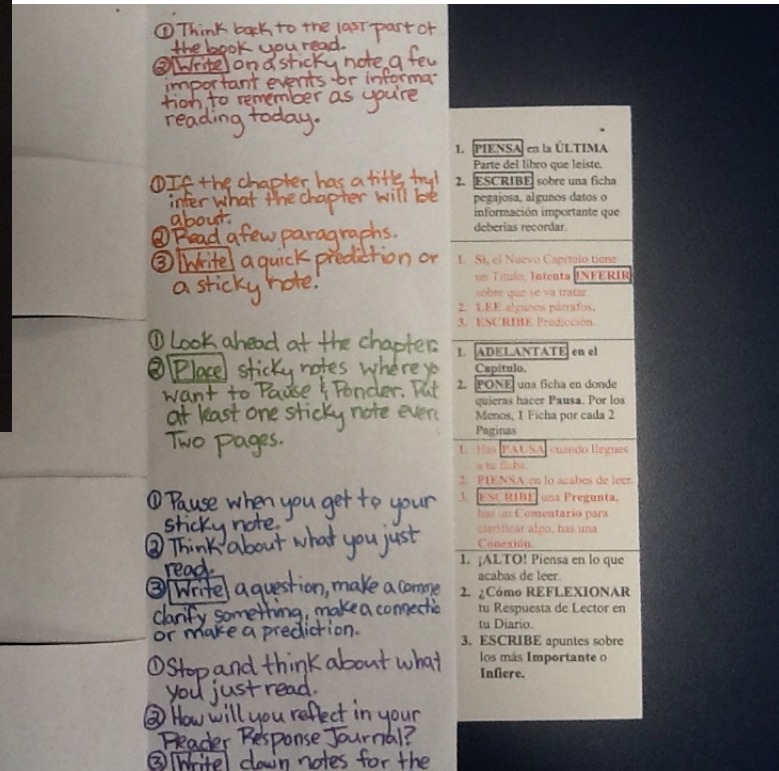 ① Think back to the last part of
the book you read.
② Write on a sticky note a few
important events or informa-
tion to remember as you're
reading today.
① If the chapter has a title, try
infer what the chapter will be
about.
② Read a few paragraphs.
③ Write a quick prediction or
a sticky note.
① Look ahead at the chapter.
② Place sticky notes where yo
want to Pause & Ponder. Put
at least one sticky note ever
Two pages.
① Pause when you get to your
sticky note.
② Think about what you just
read.
③ Write a question, make a comme
clarify something, make a connectio
or make a prediction.
① Stop and think about what
you just read.
② How will you reflect in your
Reader Response Journal?
③ Write down notes for the
1. PIENSA en la ÚLTIMA
Parte del libro que leiste.
2. ESCRIBE sobre una ficha
pegajosa, algunos datos o
información importante que
deberías recordar.
1. Si, el Nuevo Capitulo tiene
un Titulo, Intenta INFERIR
sobre que se va tratar.
2. LEE algunos párrafos.
3. ESCRIBE Predicción.
1. ADELANTATE en el
Capitulo.
2. PONE una ficha en donde
quieras hacer Pausa. Por los
Menos, 1 Ficha por cada 2
Paginas
1. Has PAUSA cuando llegues
a tu ficha.
2. PIENSA en lo acabes de leer.
3. ESCRIBE una Pregunta,
has un Comentario para
clarificar algo, has una
Conexión.
1. ¡ALTO! Piensa en lo que
acabas de leer.
2. ¿Cómo REFLEXIONAR
tu Respuesta de Lector en
tu Diario.
3. ESCRIBE apuntes sobre
los más Importante o
Infiere.